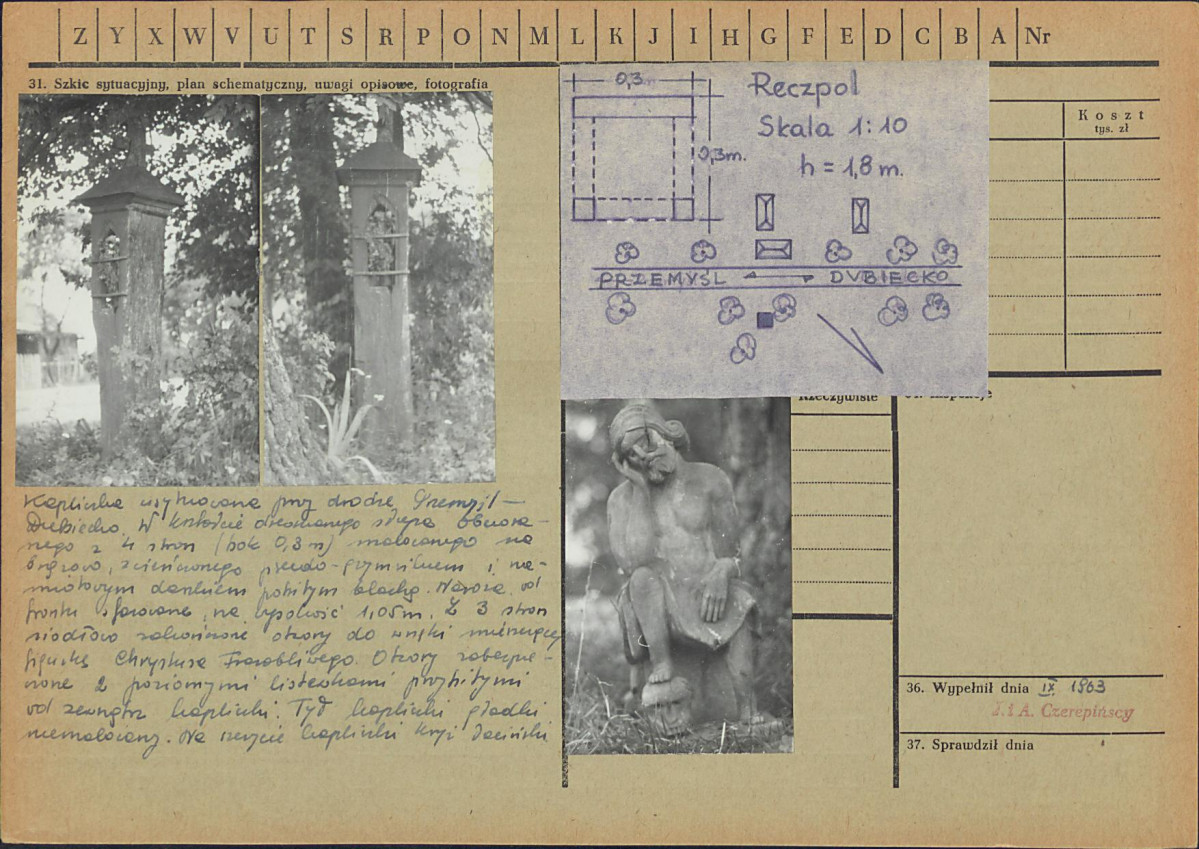 Z Y X W V U T S R P O N M L K J I H G F E D C B A Nr
31. Szkic sytuacyjny, plan schematyczny, uwagi opisowe, fotografia
0,3m
0,3m.
Reczpol
Skala 1:10
h = 1,8 m.
PRZEMYŚL DUBIECKO
Koszt
tys. zł
Rzeczywiste
Kapliczka usytuowana przy drodze Przemyśl –
Dubiecko. W kształcie drewnianego słupa
z 4 stron (bok 0,3 m) malowanego na
brązowo, zwieńczonego pseudo-gzymsikiem i na-
miotowym daszkiem pobitym blachą. od
frontu na wysokość 1,05m. Z 3 stron
siodłowo zakończone otwory do wnęki mieszczącej
figurkę Chrystusa Frasobliwego. Otwory zabezpie-
czone 2 poziomymi listewkami przybitymi
od zewnątrz kapliczki. Tył kapliczki gładki
niemalowany. Na szczycie kapliczki krzyż
36. Wypełnił dnia IX 1963
J. i A. Czerepińscy
37. Sprawdził dnia